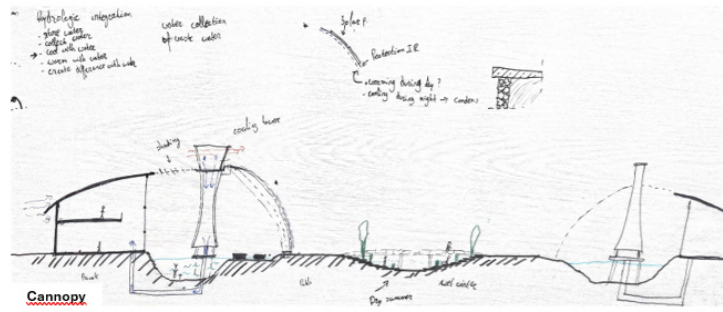 Hydrologic integration
- store water
- collect water
→ - cool with water
- warm with water
- create difference with water
water collection
of waste water
Solar P.
Protection IR
- warming during day?
- cooling during night → condens
shading
cooling tower
Dry summer
Wet winter
Cannopy